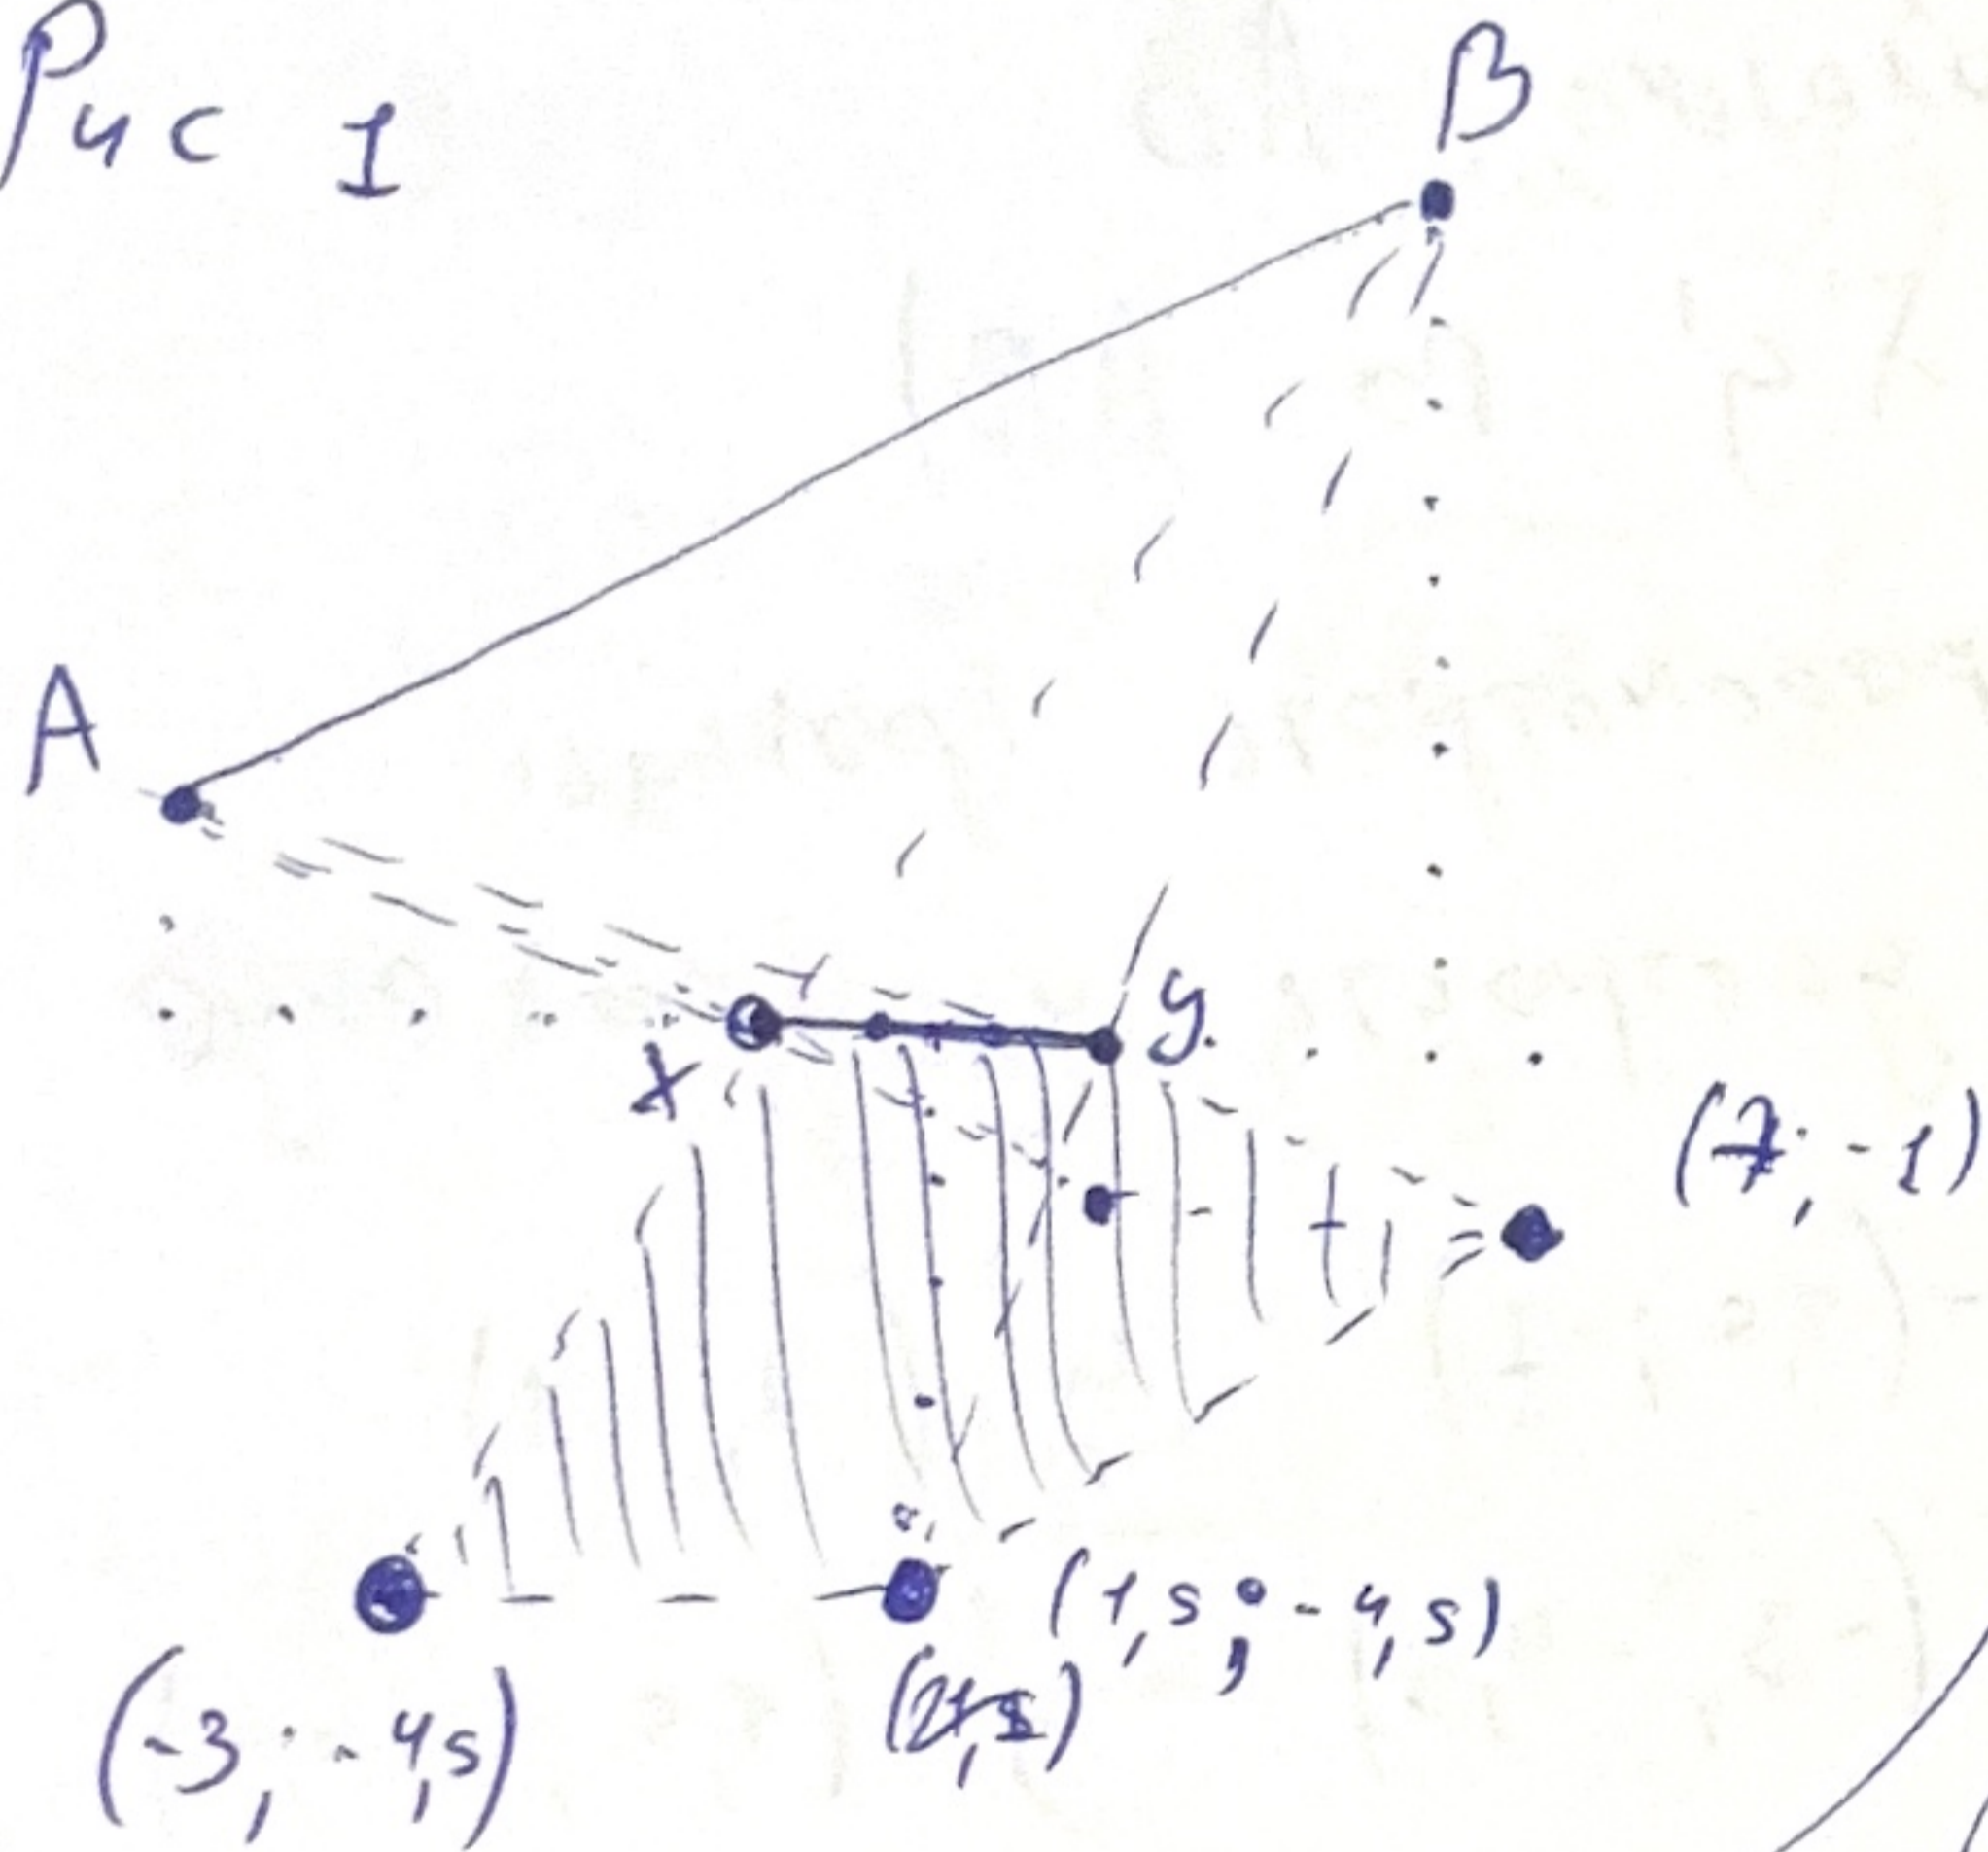 Рис 1
B
A
X
y
(7; -1)
(1,5; -4,5)
(-3; -4,5)